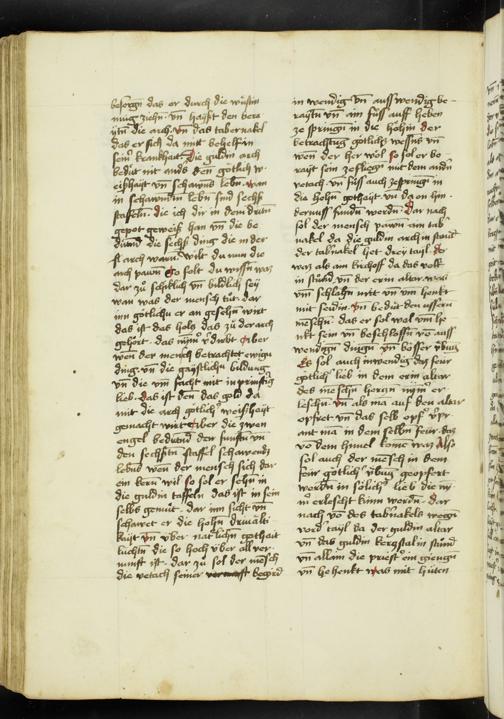 besorgn das er durch die wüstin
müg ziehn vn hayst den bera
ytn die arch vn das tabernakel
das er sich da mitt behelff in
seinr krankhait Die guldin arch
bedüt nit andrs den götlich w
eißhayt vn schawend lebn wan
in schawendin lebn sind sechs
staffeln die ich dir in dem dritn
gepot geweist han vn die be
dütend die sechs ding die in der
arch warn wilt du nun die
arch pawn So solt du wissn was
dar zu schiklich vn bildlich sey
wan was der mensch tüt dar
inn götlichs er an gesehn wirt
das ist das holtz das zu der arch
gehört das nimer verdirbt Aber
wen der mensch betrachtet ewige
ding vn die gaystlichn bildung
vn die im facht mit inprünstiger
lieb das ist den das gold da
mit die arch götlicher weißhayt
gemacht wirt Aber die zwen
engel bedütend den fünften vn
den sechsten staffel schawends
lebns wen der mensch sich dar
ein kern wil so sol er sehn in
die guldin taffeln das ist in sein
selbs gemüt dar inn sicht vn
schawet er die hohn driualti
kayt vn über natürlichn gothait
liechtn die so hoch über all ver
nunft ist dar zu sol der mensch
die vetach seiner begird
in wendig vn ausswendig be-
raytn vn ain fuss auff heben
ze springn in die höhin der
betrachtug götlichs wesens vn
wen der her wol so sol er be
rayt sein ze fliegn mit dem andn
vetach vn füss auch ze springn in
die höhin gothait vn da on hin-
dernuss fundn werdn Dar nach
sol der mensch pawn ain tab
nakel da die guldin arch in stand
der tabnakel het drey tayl der
was als ain kirchoff da das volk
in stünd vn der erin altar was
vn schlahn mit vn um henkt
mit seidin Vn bedüt den ussern
menschn das er sol wol um he
nkt sein vn beschlossn vor auss
wendign dingn vn bösser übung
Es sol auch inwendig das feur
götlicher lieb in dem erin altar
des menschn herczn nimer er
leschn Vn als man auf den altar
opfret vn das selb opfer ver
ant man in dem selbn feur das
vo dem himel kome was Also
sol auch der mensch in dem
feur götlicher übung geopfert
werdn in sölicher lieb die ni
mer erlescht kann werdn dar
nach vo des tabnakels wegn
vord tayl da der guldin altar
vn das guldin kerczstal in stünd
vn allain die priester ein giengn
vn behenkt was mit hütten